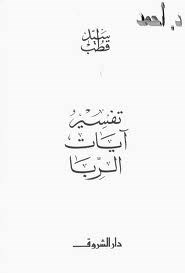 د. أحمد
سيد
قطب
تفسير
آيات
الربا
دار الشروق